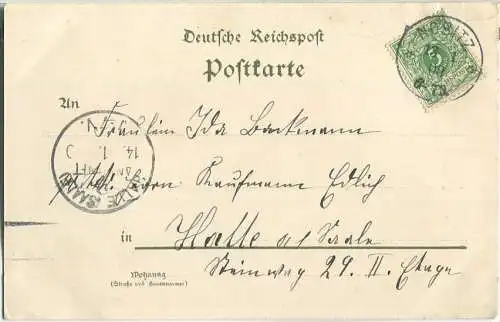 Deutsche Reichspost
Postkarte
An
Fräulein Ida Backmann
Herrn Kaufmann Edlich
in
Halle a/ Saale
Steinweg 29. II. Etage
Wohnung
(Straße und Hausnummer)
NOBITZ
5
14. 1.
HALLE (SAALE)